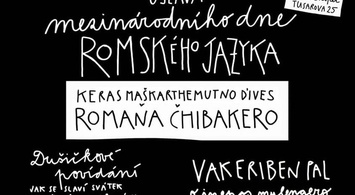 OSLAVA
mezinárodního dne
ROMSKÉHO JAZYKA
TUSAROVA 25
KERAS MAŠKARTHEMUTNO ĎIVES
ROMAŇA ČHIBAKERO
Dušičkové
povídání
JAK SE SLAVÍ SVÁTEK
VAKERIBEN PAL